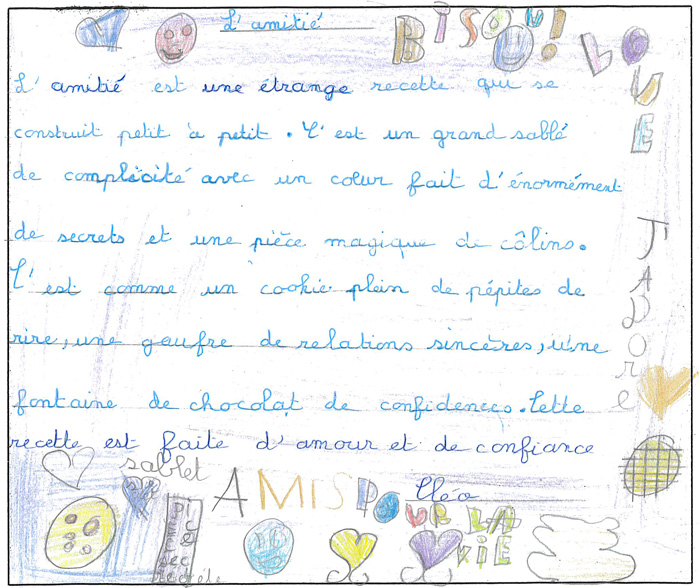 L'amitié
BISOU!
LOVE
L'amitié est une étrange recette qui se
construit petit à petit. C'est un grand sablé
de complicité avec un cœur fait d'énormément
de secrets et une pièce magique de câlins.
C'est comme un cookie plein de pépites de
rire, une gaufre de relations sincères, une
fontaine de chocolat de confidences. Cette
recette est faite d'amour et de confiance
JADore
sablet
AMIS POUR LA ViE
Cléo